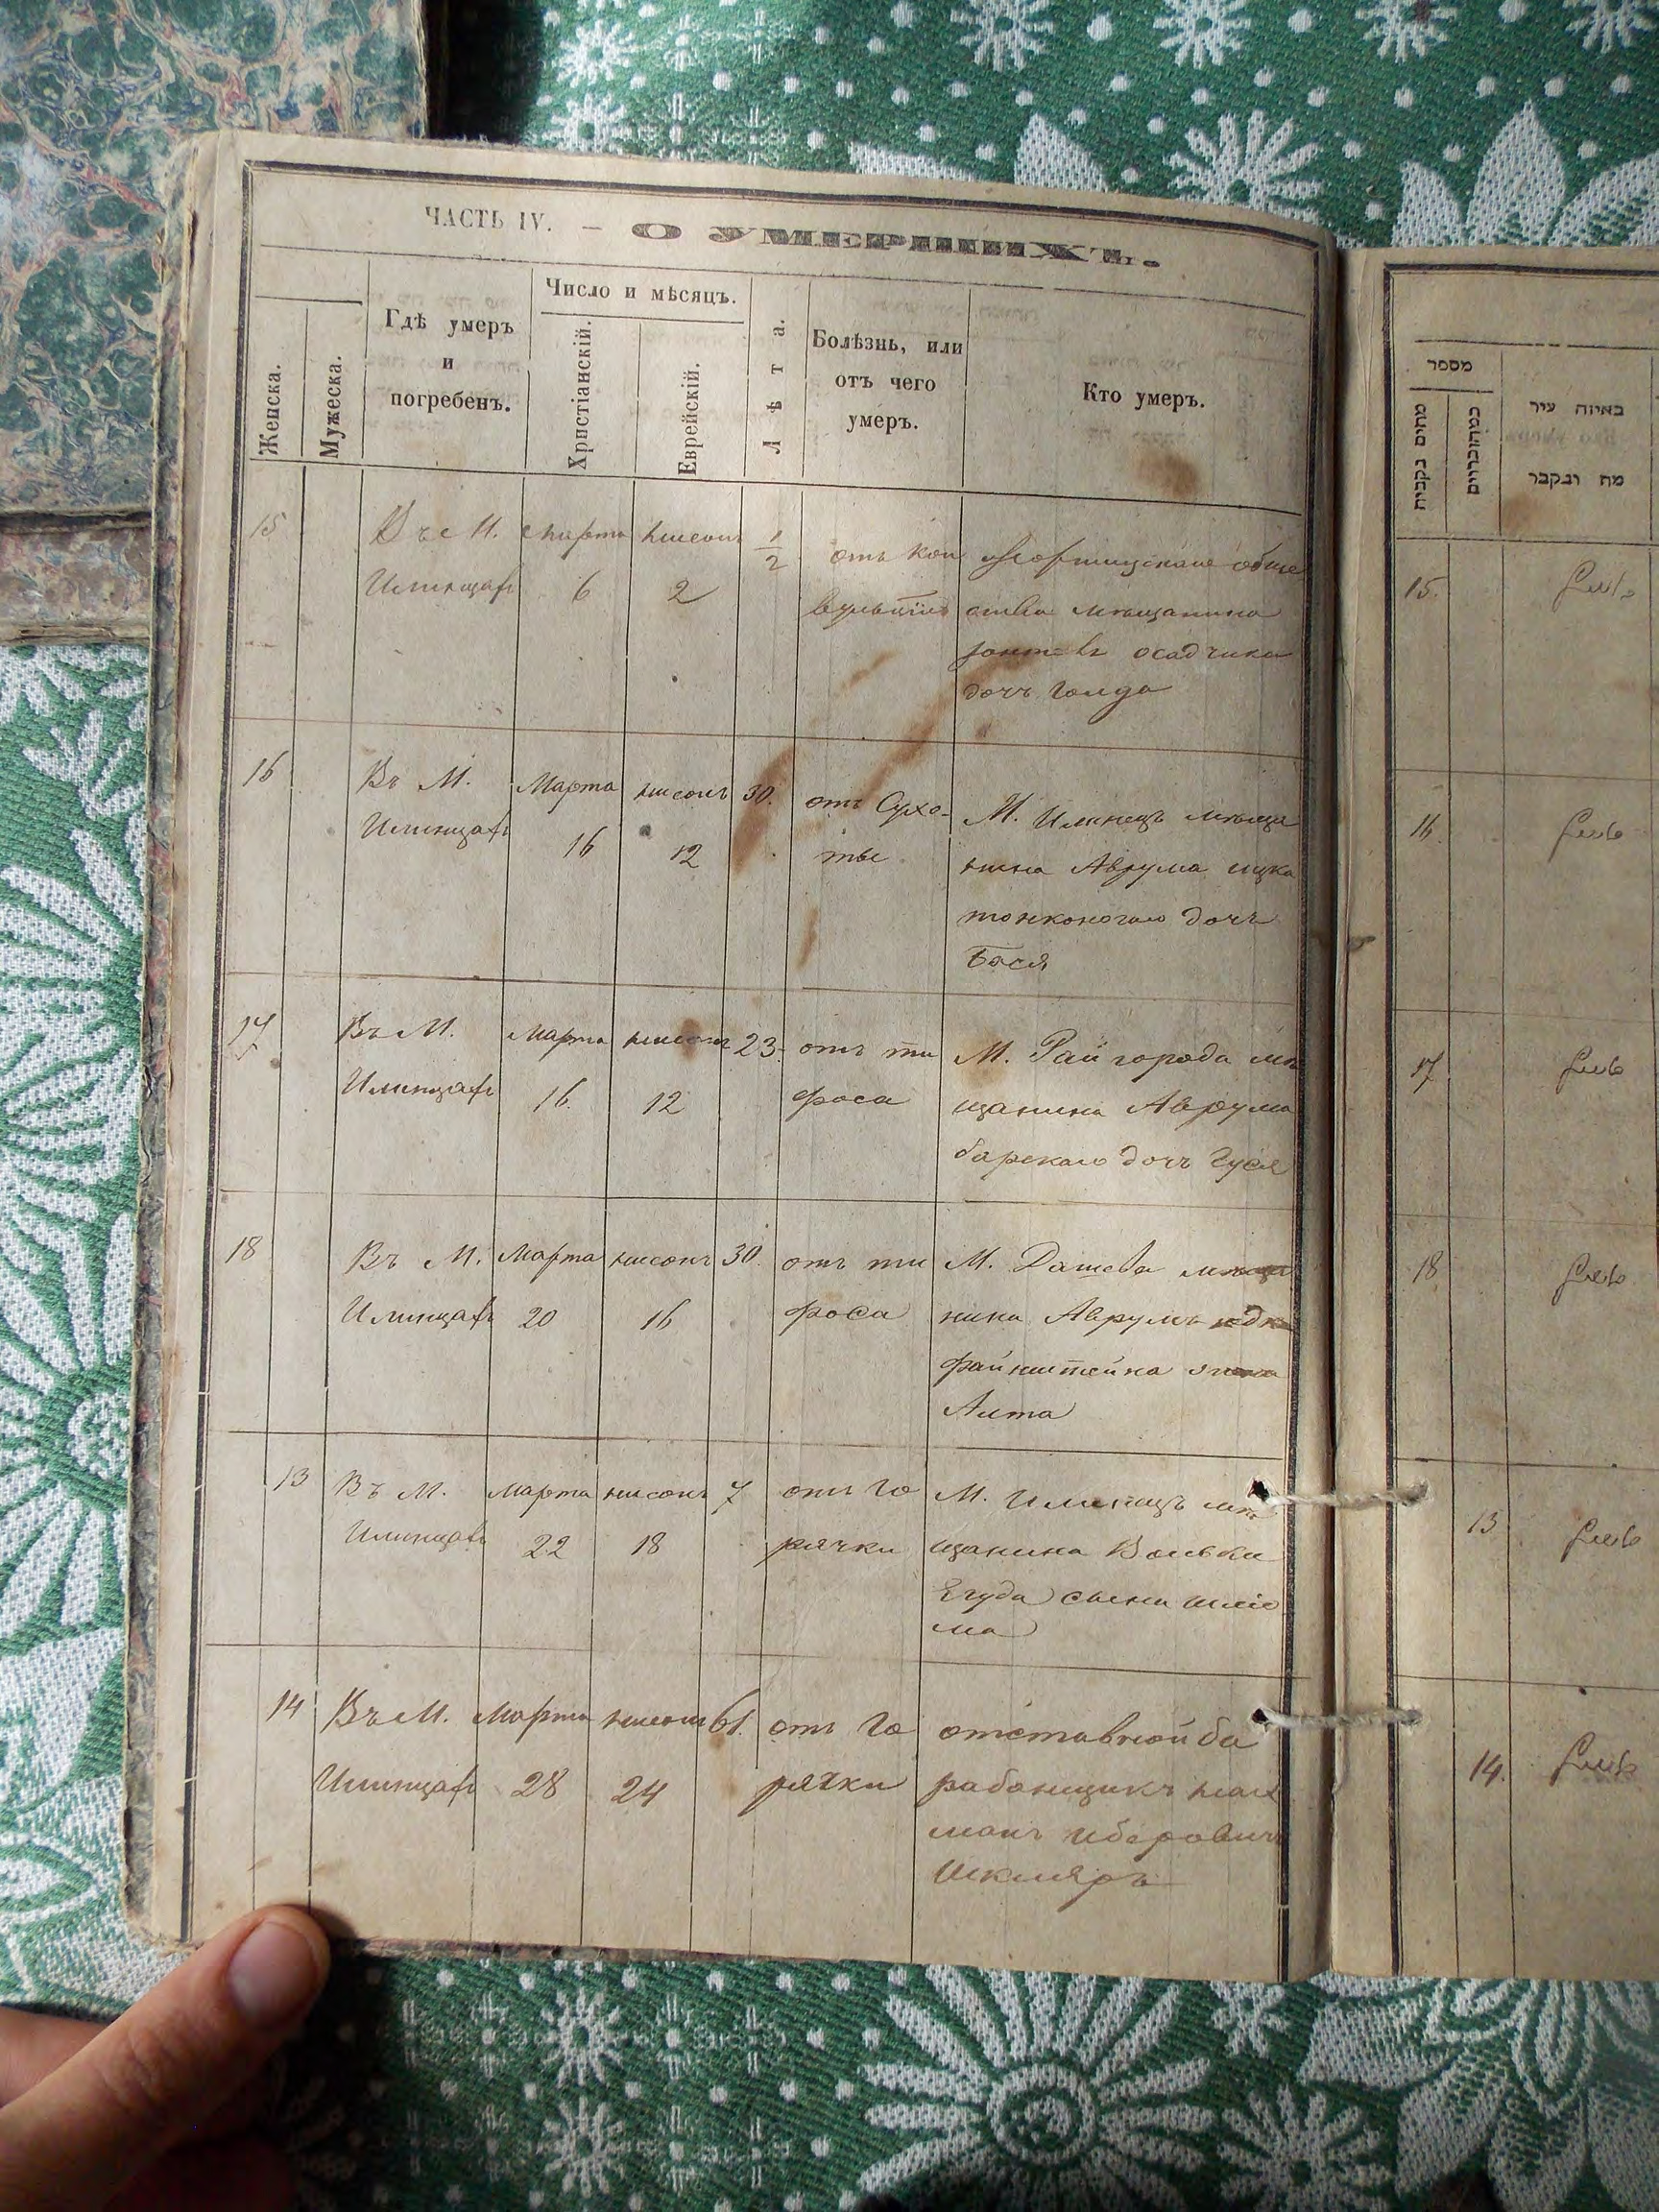 ЧАСТЬ IV. — О УМЕРШИХЪ.
Женска.
Мужеска.
Гдѣ умеръ
и
погребенъ.
Число и мѣсяцъ.
Христіанскій.
Еврейскій.
Лѣта.
Болѣзнь, или
отъ чего
умеръ.
Кто умеръ.
15
Въ М.
Илинцахъ
Марта
6
нисонъ
2
1/2
отъ кон
вульсіи
обще
ства мѣщанина
осадчика
дочъ Голда
16
Въ М.
Илинцахъ
Марта
16
нисонъ
12
30.
отъ Сухо-
ты
М. Илинецъ мѣща
нина Аврума ицка
тонконогаго дочъ
Бася
17
Въ М.
Илинцахъ
марта
16.
нисонъ
12
23.
отъ ти
фоса
М. Рай города мѣ
щанина Аврума
барскаго дочъ Гуся
18
Въ М.
Илинцахъ
Марта
20
нисонъ
16
30.
отъ ти
фоса
М. Дашева
нина Аврумъ
файнштейна жена
Алта
13
Въ М.
Илинцахъ
марта
22
нисонъ
18
7
отъ го
рячки
М. Илинецъ мѣ
щанина Вольки
Егуда сынъ шліо
ма
14
Въ М.
Илинцахъ
Марта
28
нисонъ
24
61.
отъ го
рячки
отставной ба
рабанщикъ нах
манъ
Шкляръ
מספר
מתים נקבות
באיזה עיר
מת ונקבר
15.
16
17
18
13
14.